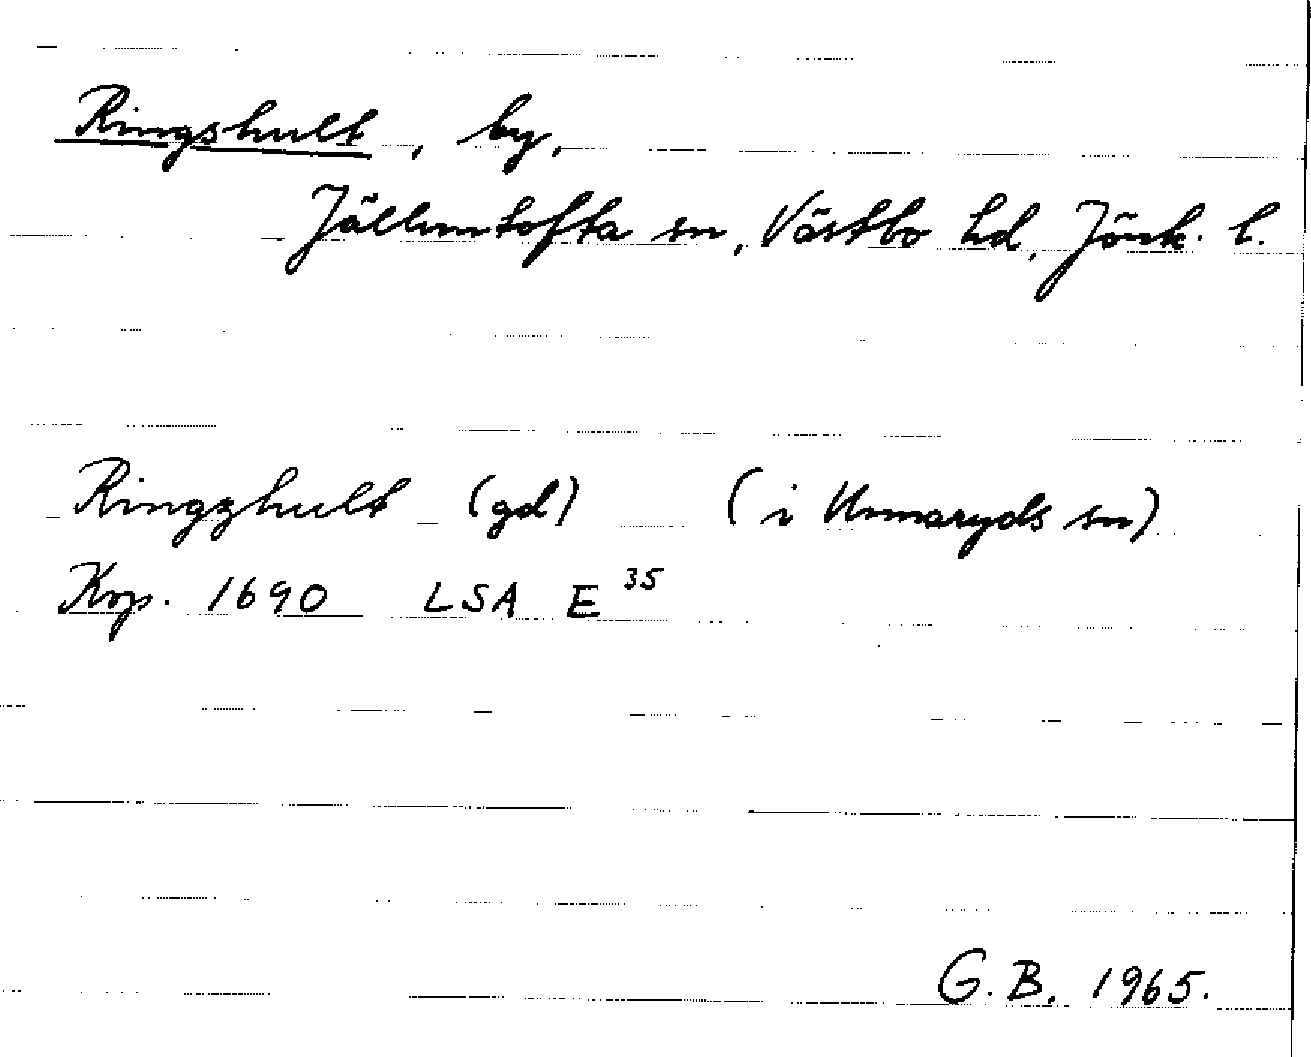 Ringshult, by,
Jälluntofta sn, Västbo hd, Jönk. l.
Ringzhult (gd) (i Unnaryds sn)
Kop. 1690 LSA E 35
G. B. 1965.